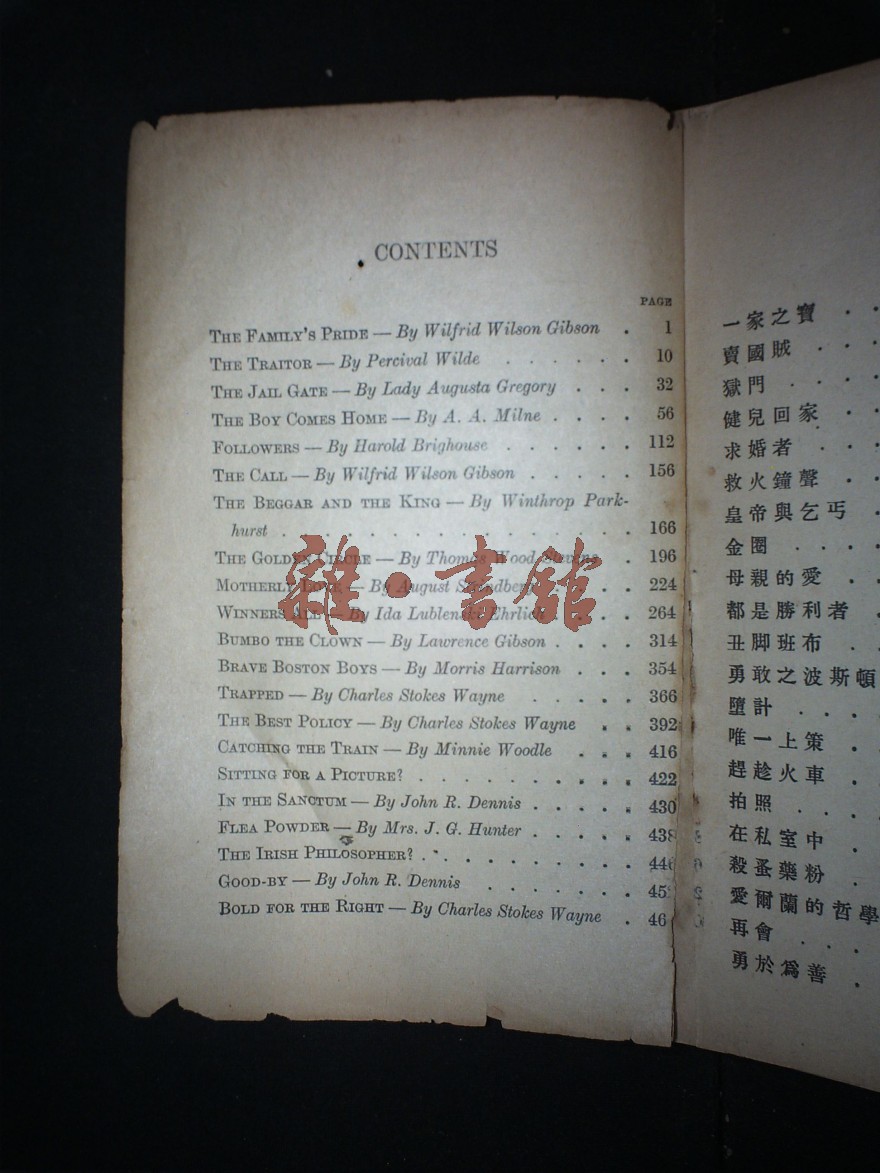 CONTENTS
PAGE
THE FAMILY'S PRIDE — By Wilfrid Wilson Gibson . 1
THE TRAITOR — By Percival Wilde . . . . . . 10
THE JAIL GATE — By Lady Augusta Gregory . . . 32
THE BOY COMES HOME — By A. A. Milne . . . . 56
FOLLOWERS — By Harold Brighouse . . . . . . 112
THE CALL — By Wilfrid Wilson Gibson . . . . . 156
THE BEGGAR AND THE KING — By Winthrop Park-
hurst . . . . . . . . . . . . . . 166
THE GOLDEN CIRCLE — By Thomas Wood Stevens . 196
MOTHERLY LOVE — By August Strindberg . . . . 224
WINNERS ALL — By Ida Lublenski Ehrlich . . . 264
BUMBO THE CLOWN — By Lawrence Gibson . . . . 314
BRAVE BOSTON BOYS — By Morris Harrison . . . 354
TRAPPED — By Charles Stokes Wayne . . . . . 366
THE BEST POLICY — By Charles Stokes Wayne . . 392
CATCHING THE TRAIN — By Minnie Woodle . . . 416
SITTING FOR A PICTURE? . . . . . . . . . 422
IN THE SANCTUM — By John R. Dennis . . . . . 430
FLEA POWDER — By Mrs. J. G. Hunter . . . . . 438
THE IRISH PHILOSOPHER? . . . . . . . . . 446
GOOD-BY — By John R. Dennis . . . . . . 45
BOLD FOR THE RIGHT — By Charles Stokes Wayne . 46
雜·書館
一家之寶 . .
賣國賊 . . .
獄門 . . . .
健兒回家 . .
求婚者 . . .
救火鐘聲 . .
皇帝與乞丐 .
金圈 . . . .
母親的愛 . .
都是勝利者 .
丑脚班布 . .
勇敢之波斯頓
墮計 . . . .
唯一上策 . .
趕趁火車 . .
拍照 . . . .
在私室中 . .
殺蚤藥粉 . .
愛爾蘭的哲學
再會 . . .
勇於爲善 .